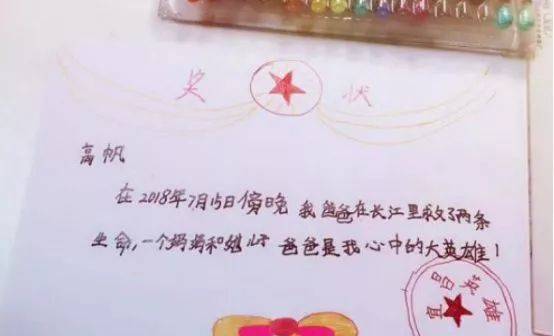 奖状
高帆
在2018年7月15日傍晚 我爸爸在长江里救了两条
生命,一个妈妈和她 爸爸是我心中的大英雄!
宜昌英雄